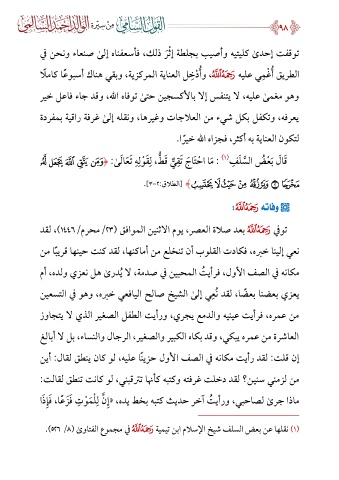 ٩٨ القول السامي من سيرة الوالد أحمد السالمي
توقفت إحدىٰ كليتيه وأصيب بجلطة إثْرَ ذلك، فأسعفناه إلىٰ صنعاء ونحن في
الطريق أُغْمِي عليه رَحِمَهُ اللَّهُ، وأُدْخِل العناية المركزية، وبقي هناك أسبوعًا كاملًا
وهو مغمىٰ عليه، لا يتنفس إلا بالأكسجين حتىٰ توفاه الله، وقد جاء فاعل خير
يعرفه، وتكفل بكل شيء من العلاجات وغيرها، ونقله إلىٰ غرفة راقية بمفردة
لتكون العناية به أكثر، فجزاه الله خيرًا.
قَالَ بَعْضُ السَّلَفِ(١) : مَا احْتَاجَ تَقِيٌّ قَطُّ، لِقَوْلِهِ تَعَالَىٰ: ﴿وَمَن يَتَّقِ ٱللَّهَ يَجْعَل لَّهُۥ
مَخْرَجًا ۝ وَيَرْزُقْهُ مِنْ حَيْثُ لَا يَحْتَسِبُ﴾ [الطلاق:٢-٣].
وفاته رَحِمَهُ اللَّهُ:
توفي رَحِمَهُ اللَّهُ بعد صلاة العصر، يوم الاثنين الموافق (٢٣/ محرم/ ١٤٤٦)، لقد
نعي إلينا خبره، فكادت القلوب أن تنخلع من أماكنها، لقد كنت حينها قريبًا من
مكانه في الصف الأول، فرأيتُ المحبين في صدمة، لا يُدرىٰ هل نعزي ولده، أم
يعزي بعضنا بعضًا، لقد نُعِي إلىٰ الشيخ صالح اليافعي خبره، وهو في التسعين
من عمره، فرأيت عينيه والدمع يجري، ورأيت الطفل الصغير الذي لا يتجاوز
العاشرة من عمره يبكي، وقد بكاه الكبير والصغير، الرجال والنساء، بل لا أبالغ
إن قلت: لقد رأيت مكانه في الصف الأول حزينًا عليه، لو كان ينطق لقال: أين
من لزمني سنين؟ لقد دخلت غرفته وكتبه كأنها تترقبني، لو كانت تنطق لقالت:
ماذا جرىٰ لصاحبي، ورأيتُ آخر حديث كتبه بخط يده، «إِنَّ لِلْمَوْتِ فَزَعًا، فَإِذَا
(١) نقلها عن بعض السلف شيخ الإسلام ابن تيمية رَحِمَهُ اللَّهُ في مجموع الفتاوىٰ (٨/ ٥٢٦).